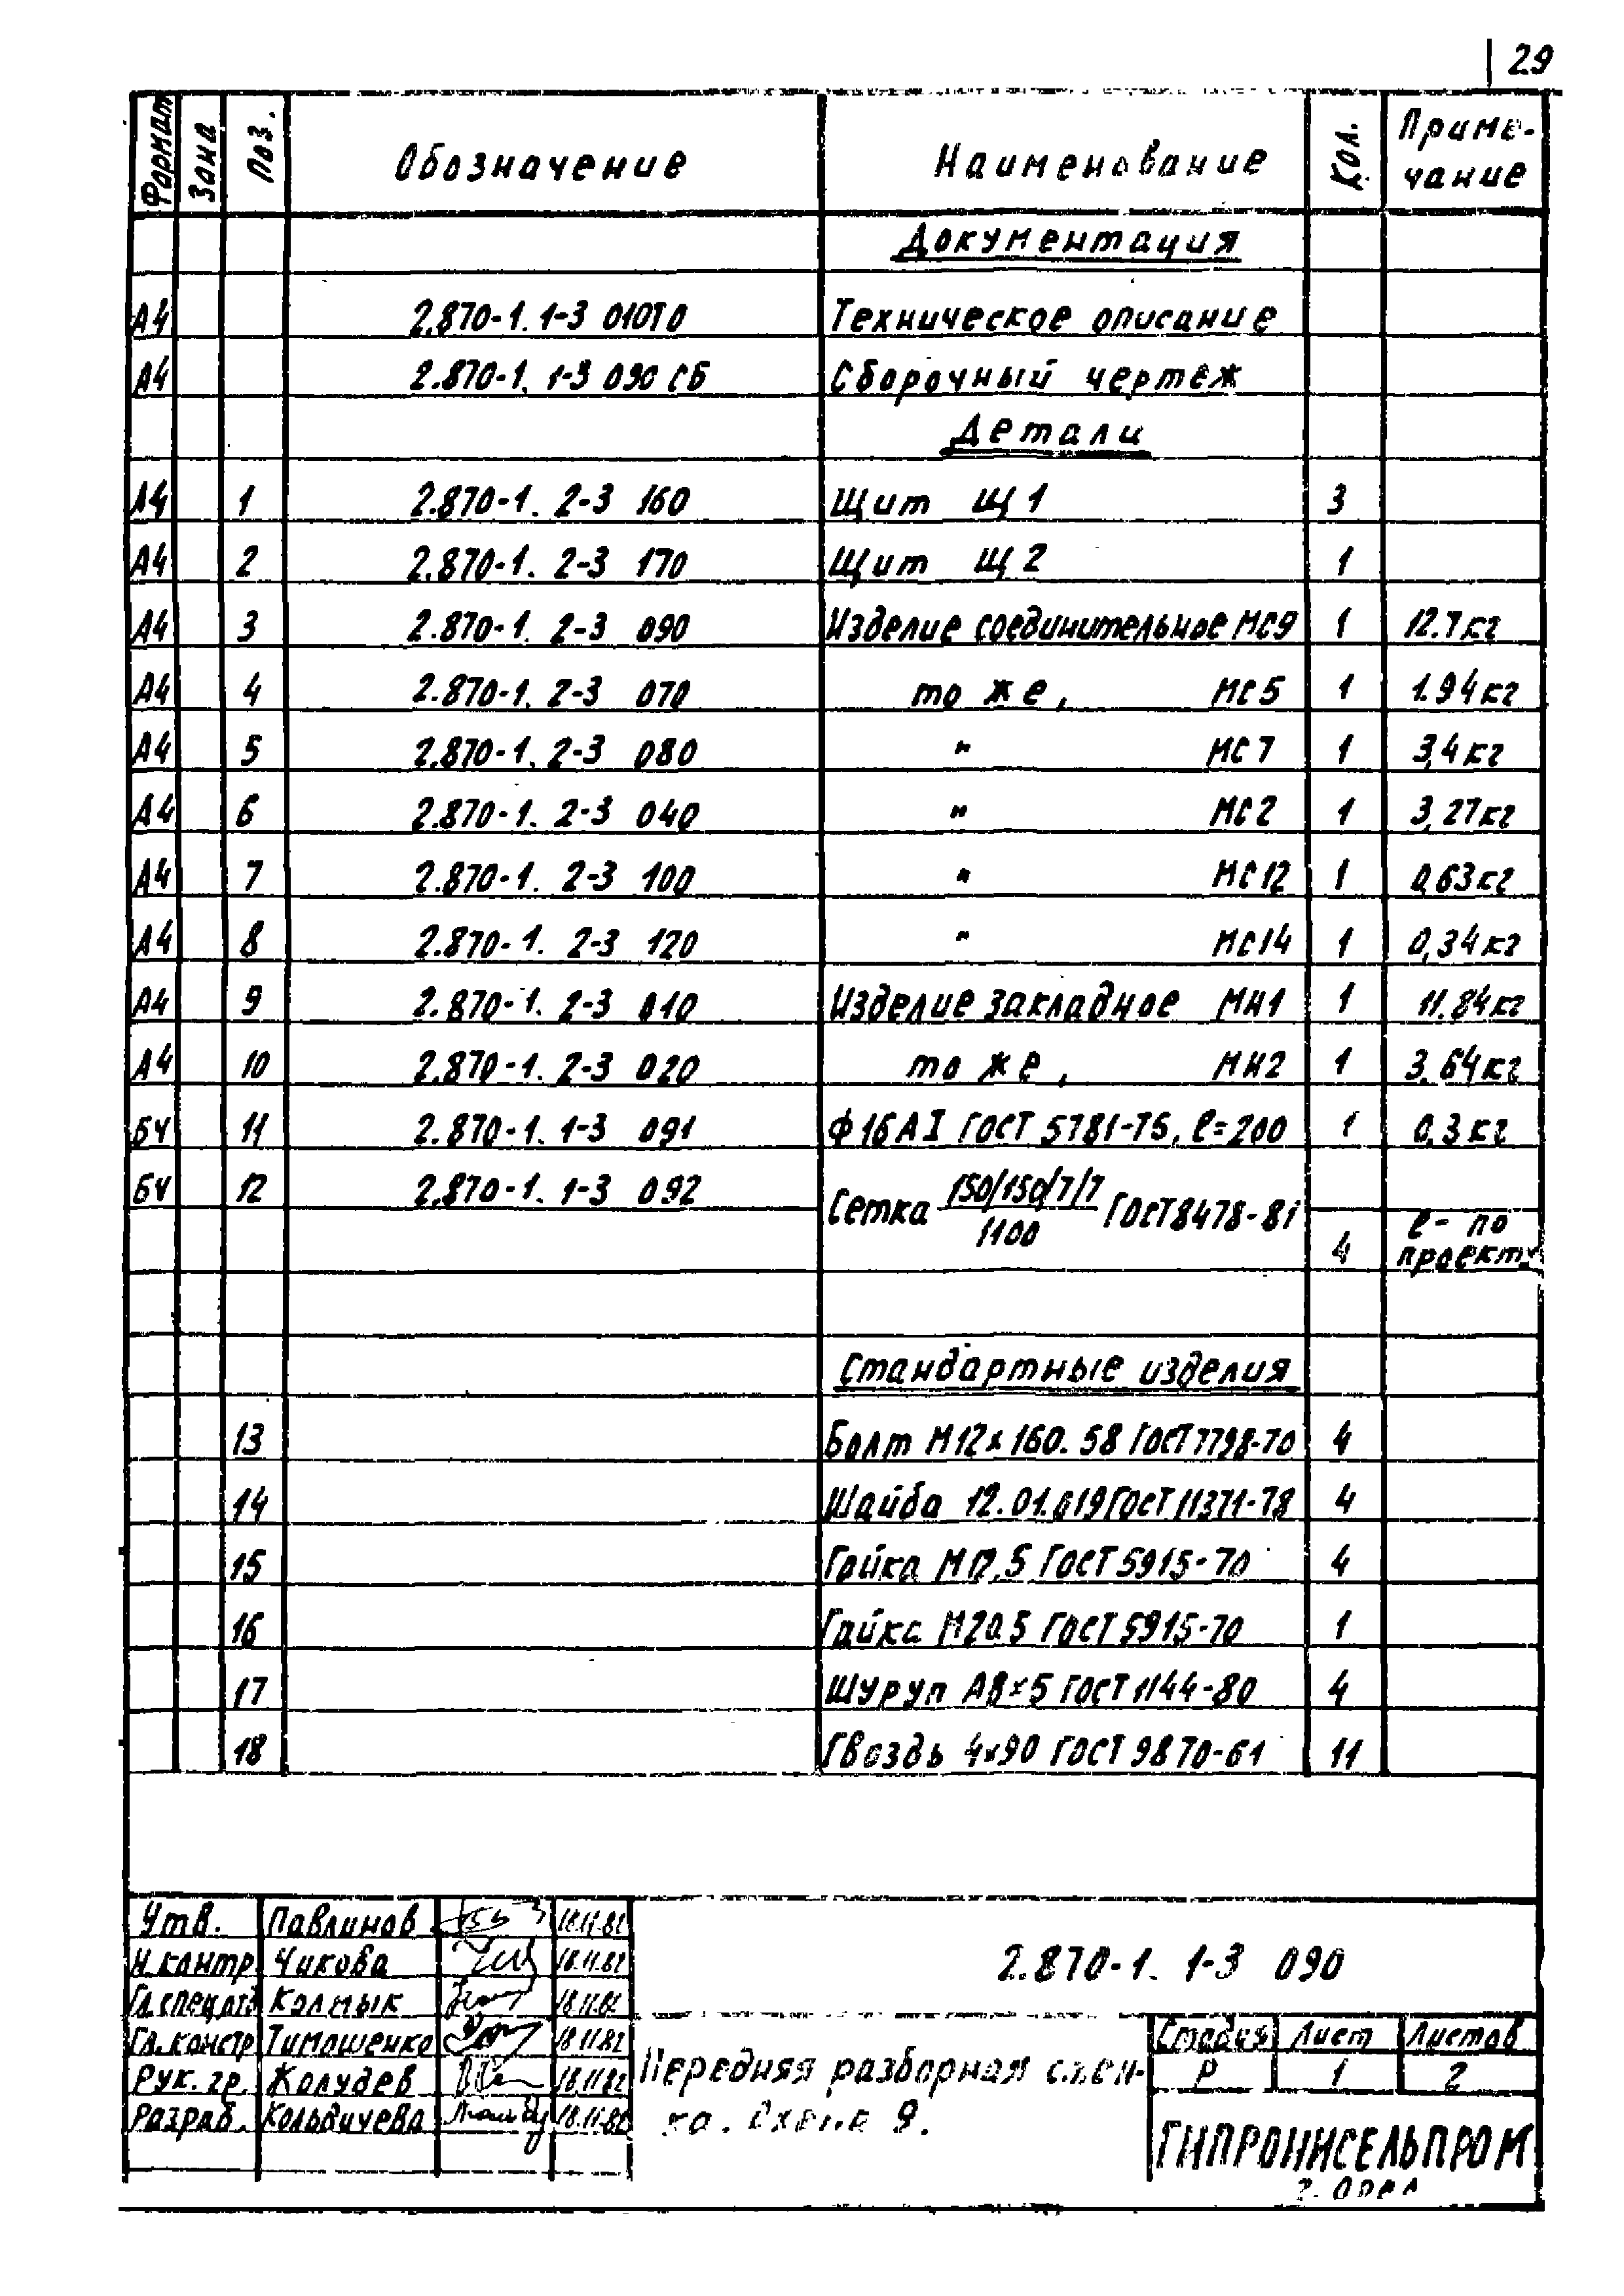 29
Формат Зона Поз. Обозначение Наименование Кол. Приме-
чание
Документация
А4 2.870-1. 1-3 010ТО Техническое описание
А4 2.870-1. 1-3 090 СБ Сборочный чертеж
Детали
А4 1 2.870-1. 2-3 160 Щит Щ1 3
А4 2 2.870-1. 2-3 170 Щит Щ2 1
А4 3 2.870-1. 2-3 090 Изделие соединительное МС9 1 12.7кг
А4 4 2.870-1. 2-3 070 то же, МС5 1 1.94кг
А4 5 2.870-1. 2-3 080 " МС7 1 3,4кг
А4 6 2.870-1. 2-3 040 " МС2 1 3,27кг
А4 7 2.870-1. 2-3 100 " МС12 1 0,63кг
А4 8 2.870-1. 2-3 120 " МС14 1 0,34кг
А4 9 2.870-1. 2-3 010 Изделие закладное МН1 1 11.84кг
А4 10 2.870-1. 2-3 020 то же, МН2 1 3.64кг
БЧ 11 2.870-1. 1-3 091 Ф16АI ГОСТ 5781-75, ℓ=200 1 0,3кг
БЧ 12 2.870-1. 1-3 092 Сетка 150/150/7/7 / 1100 ГОСТ 8478-81 4 ℓ- по
проекту
Стандартные изделия
13 Болт М12х160.58 ГОСТ 7798-70 4
14 Шайба 12.01.019 ГОСТ 11371-78 4
15 Гайка М12.5 ГОСТ 5915-70 4
16 Гайка М20.5 ГОСТ 5915-70 1
17 Шуруп А8х5 ГОСТ 1144-80 4
18 Гвоздь 4х90 ГОСТ 9870-61 11
Утв. Павлинов 18.11.82
Н.контр. Чикова 18.11.82
Гл.спец.отд Калмык 18.11.82
Гл.констр. Тимошенко 18.11.82
Рук. гр. Жолудев 18.11.82
Разраб. Кольдичева 18.11.82
2.870-1. 1-3 090
Передняя разборная стен-
ка. Схема 9.
Стадия Лист Листов
Р 1 2
ГИПРОНИСЕЛЬПРОМ
г. Орел